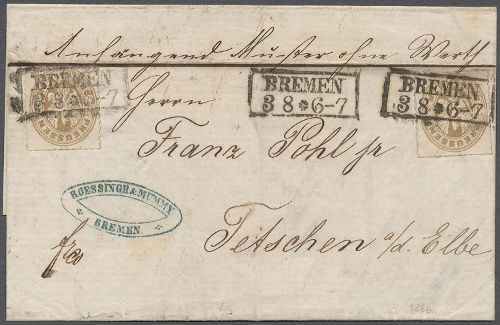 Anhängend Muster ohne Werth
BREMEN
3 8 * 6-7
BREMEN
3 8 * 6-7
BREMEN
3 8 * 6-7
Herrn
Franz Pohl jr
ROESSINGH & MUMMY
BREMEN
Tetschen a/d. Elbe
frco
1866